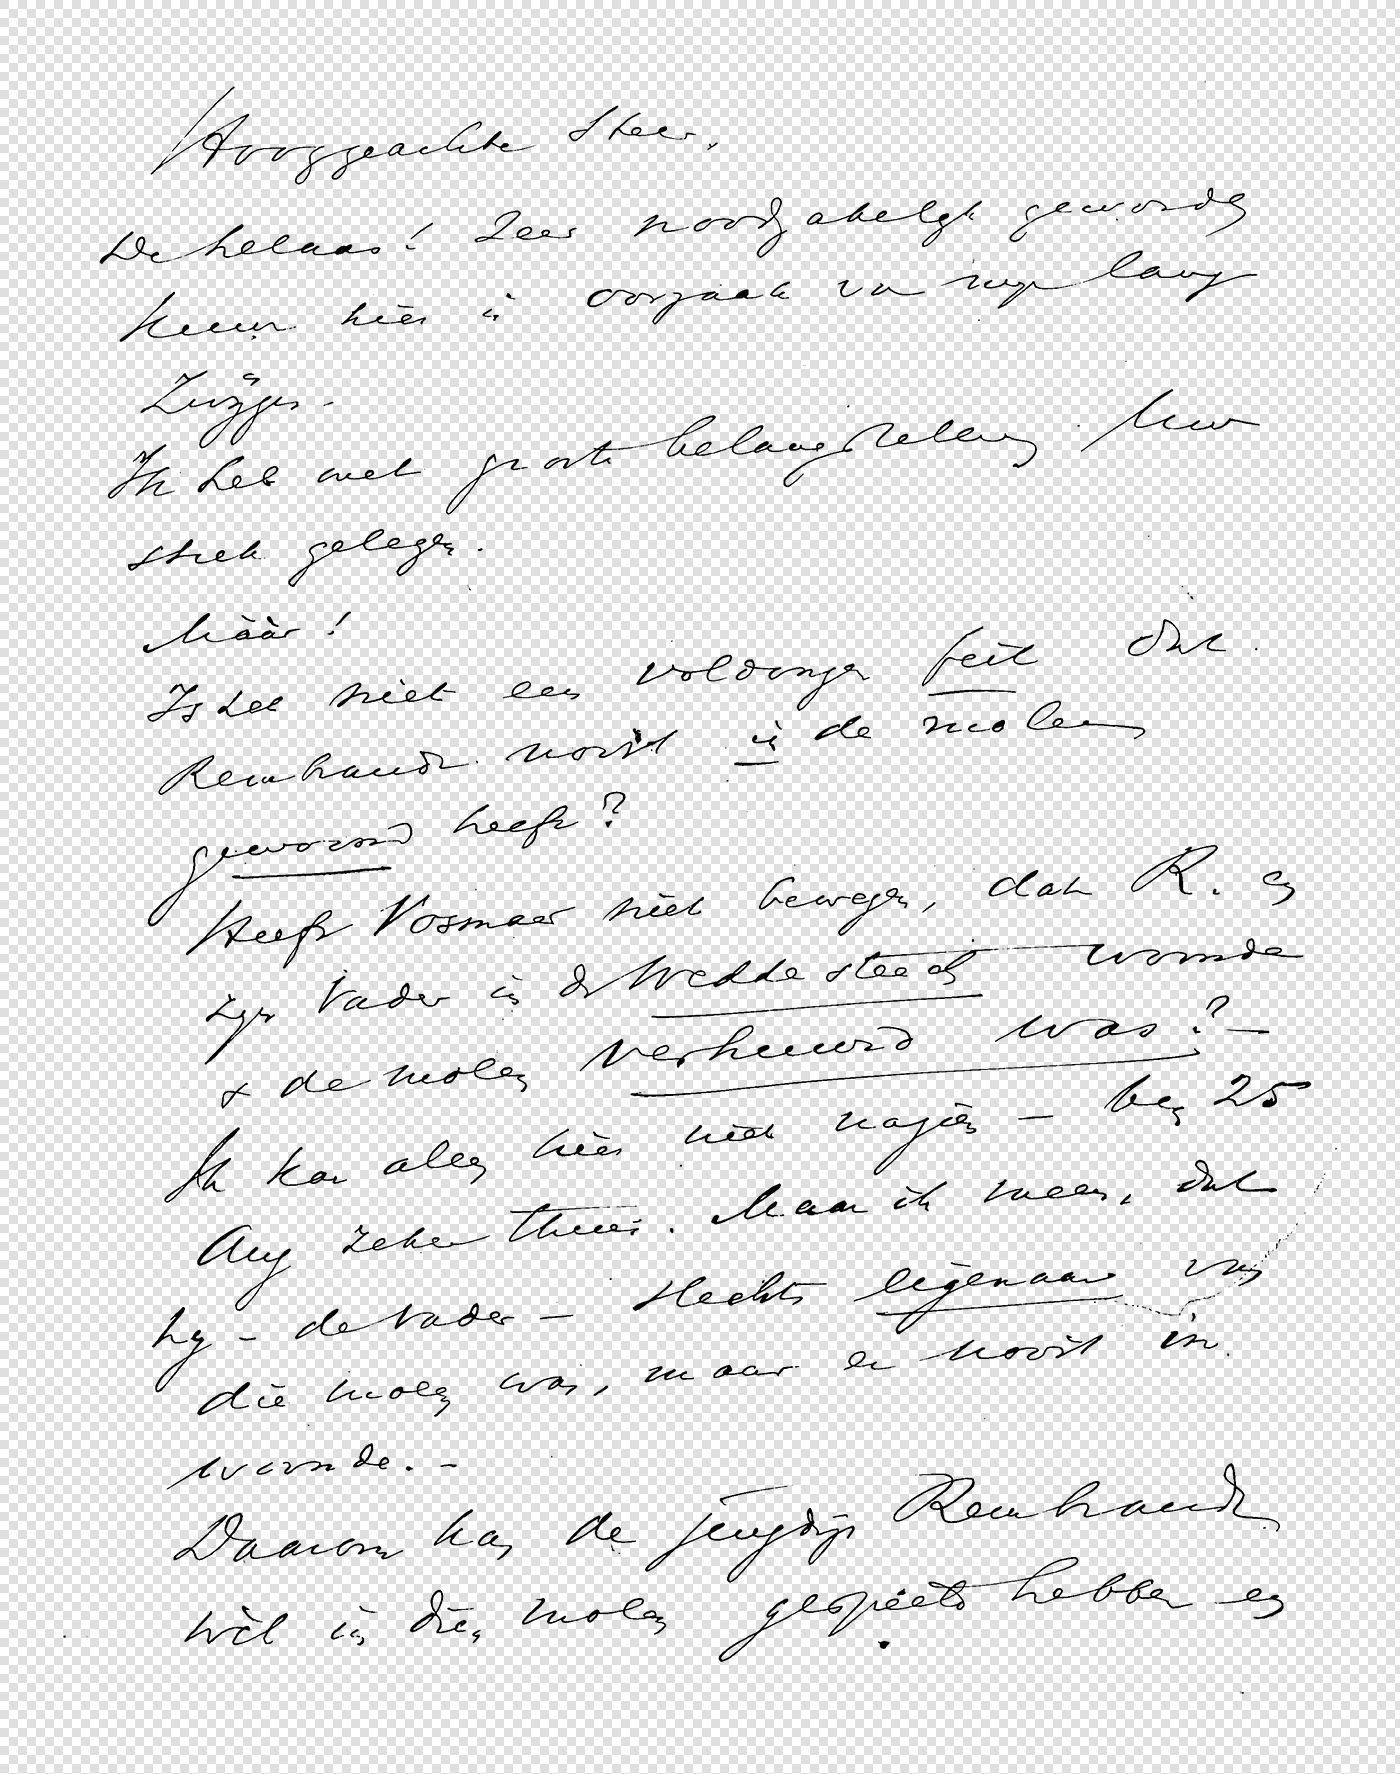 Hooggeachte Heer,
De helaas! Zeer noodzakelijk geworden
kuur hier is oorzaak van mijn lang
Zwijgen.
Ik heb met groote belangstelling Uw
stuk gelezen.
Máár!
Is het niet een voldongen feit dat
Rembrandt nooit in de molen
gewoond heeft?
Heeft Vosmaer niet bewezen, dat R. en
zijn Vader in de Weddesteeg woonde
& de molen verhuurd was? —
Ik kan alles hier niet nazien — ben 25
Aug zeker thuis. Maar ik meen, dat
hij — de Vader — slechts eigenaar van
die molen was, maar er nooit in
woonde. —
Daarom kan de jeugdige Rembrandt
wel in die molen gespeeld hebben en